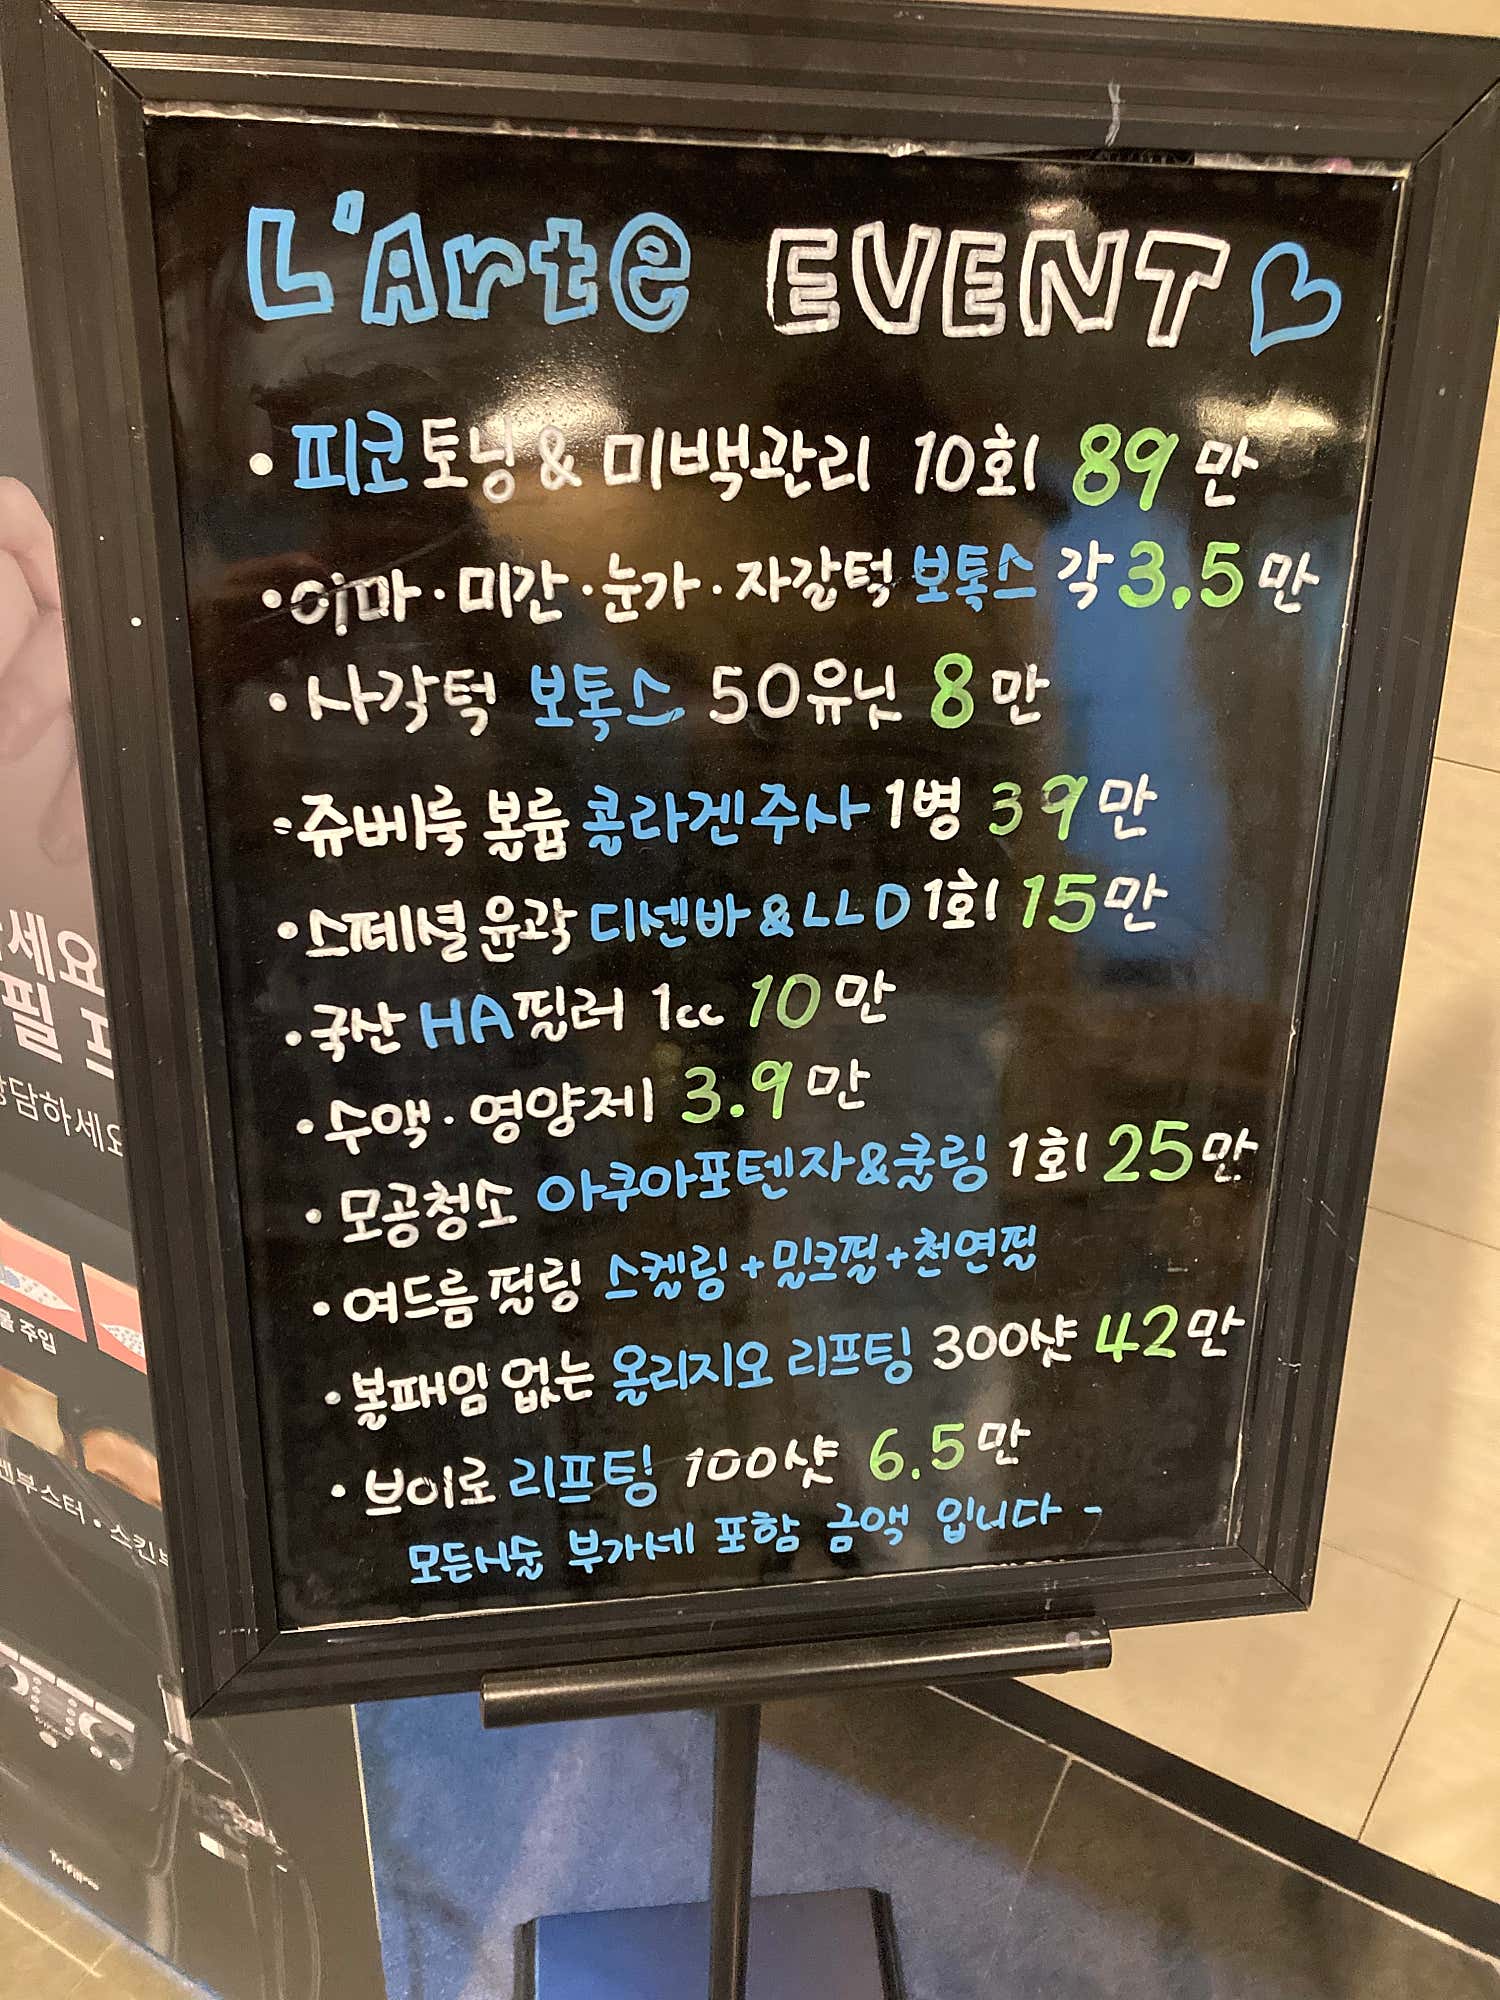 L'Arte EVENT
• 피코토닝 & 미백관리 10회 89만
• 이마 · 미간 · 눈가 · 자갈턱 보톡스 각 3.5만
• 사각턱 보톡스 50유닛 8만
• 쥬베룩 볼륨 콜라겐주사 1병 39만
• 스페셜 윤곽 디센바 & LLD 1회 15만
• 국산 HA필러 1cc 10만
• 수액 · 영양제 3.9만
• 모공청소 아쿠아포텐자&쿨링 1회 25만
• 여드름 필링 스켈링+밀크필+천연필
• 볼패임 없는 올리지오 리프팅 300샷 42만
• 브이로 리프팅 100샷 6.5만
모든시술 부가세 포함 금액 입니다 -
세요
필
담하세요
주입
부스터 • 스킨